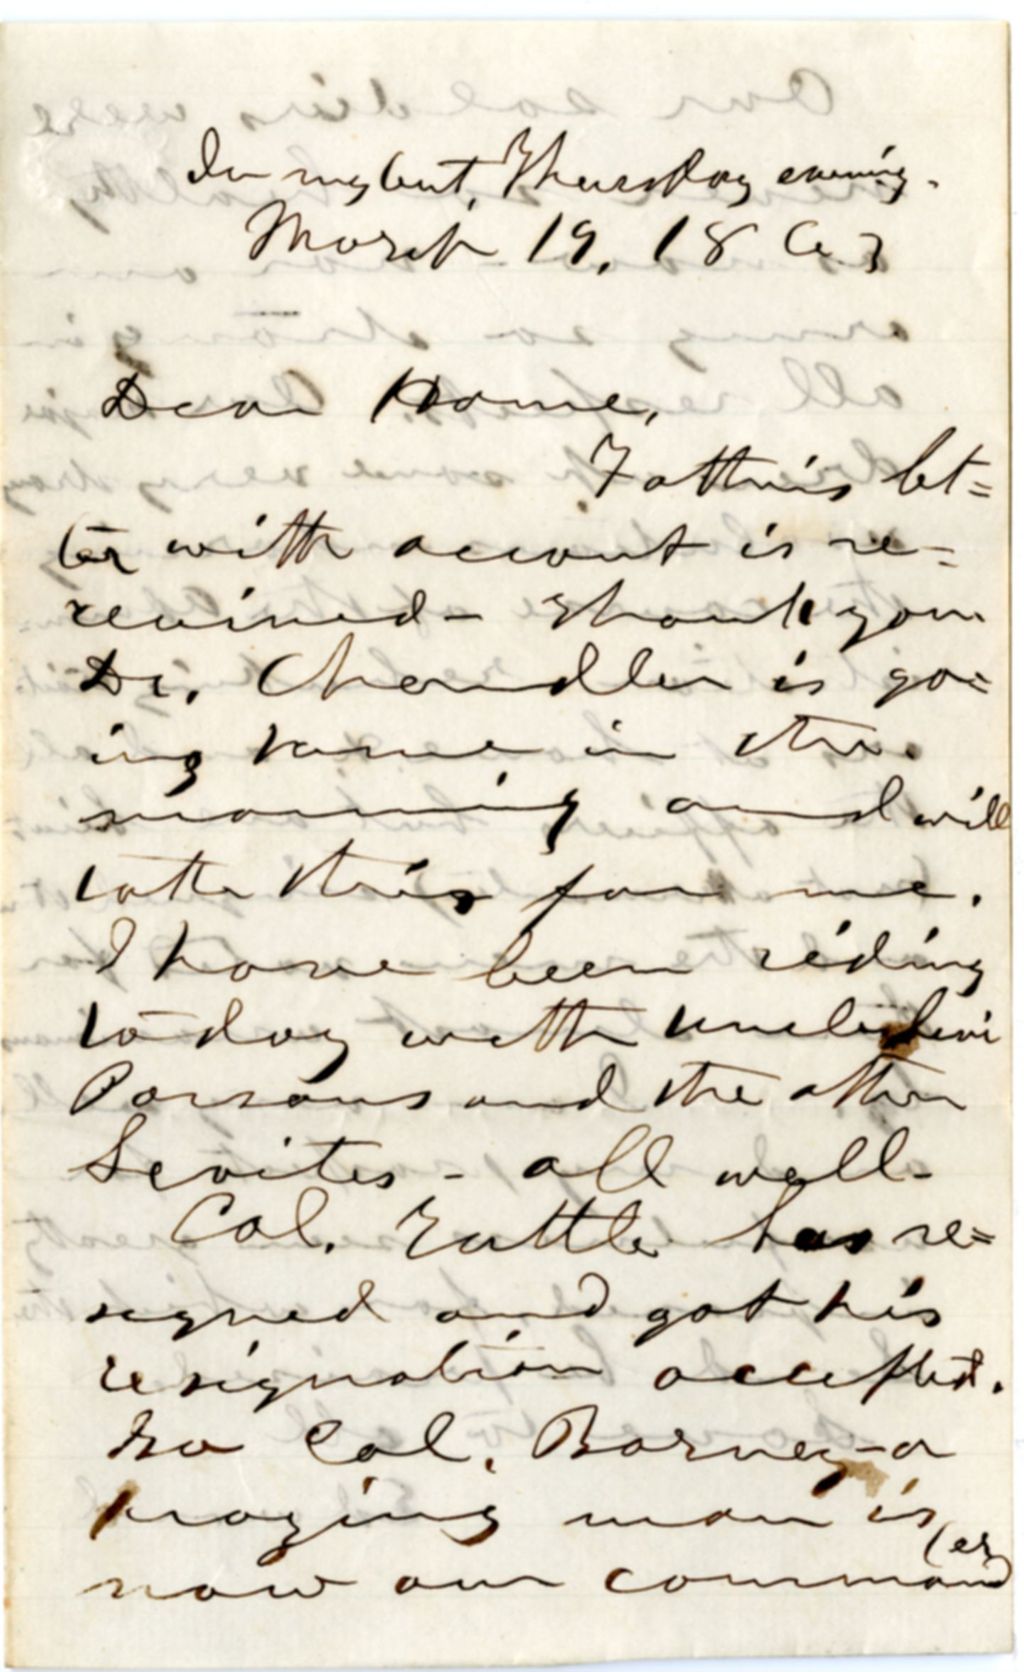 In my tent, Thursday evening.
March 19, 1863
Dear Home,
Father's let=
ter with account is re=
ceived - Thank you
Dr. Chandler is go=
ing home in the
morning and will
take this for me.
I have been riding
to day with Uncle Levi
Parsons and the other
Levites - all well -
Col. Tuttle has re=
signed and got his
resignation accepted.
So Col. Barney - a
praying man is
now our command(er